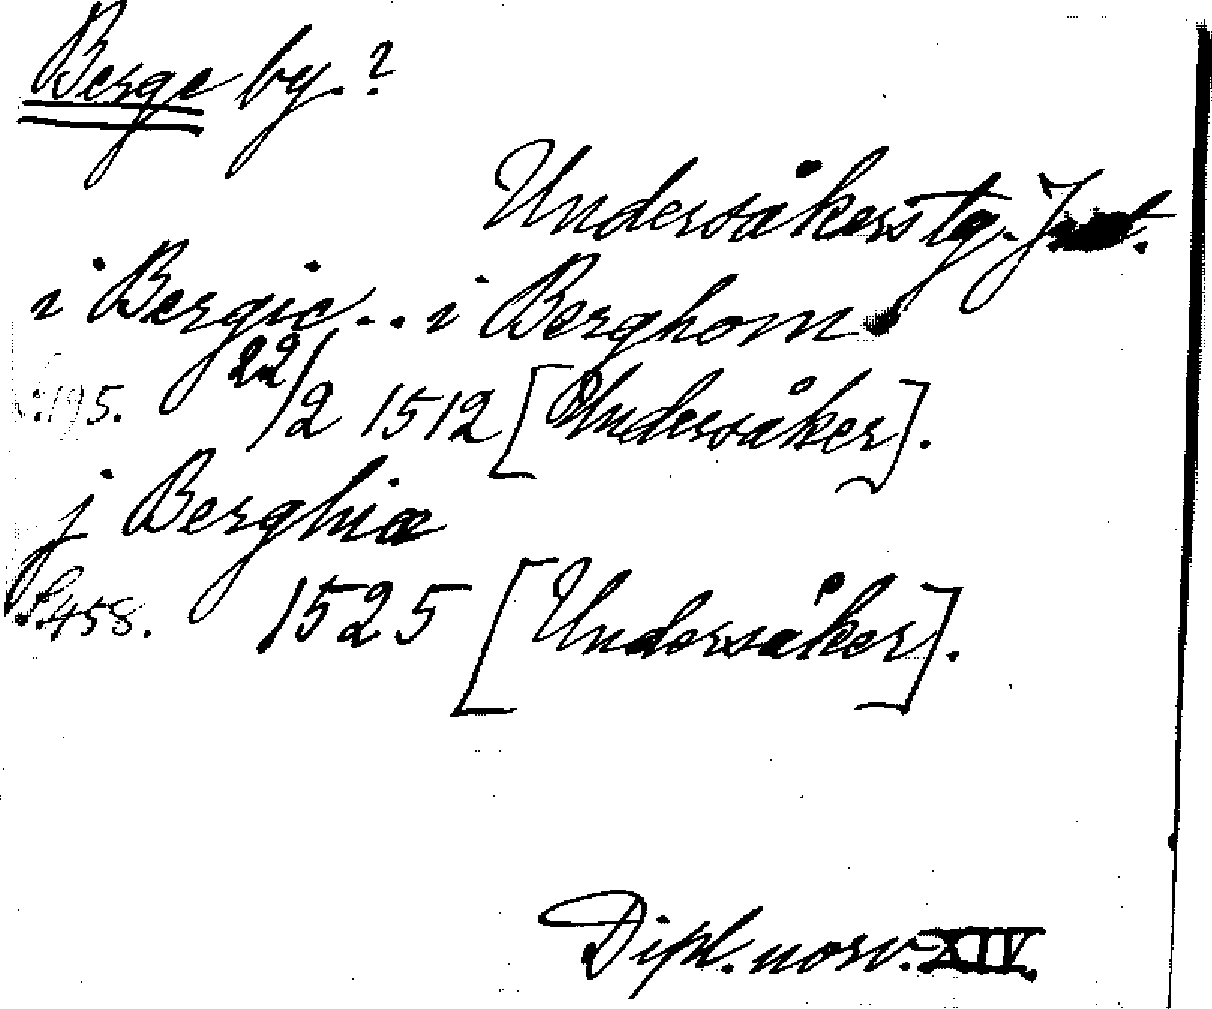 Berge by. ?
Undersåkers tg. J
i Bergie... i Berghom
s. 195. 22/2 1512 [Undersåker].
j Berghiæ
s. 458. 1525 [Undersåker].
Dipl. norv. XIV.